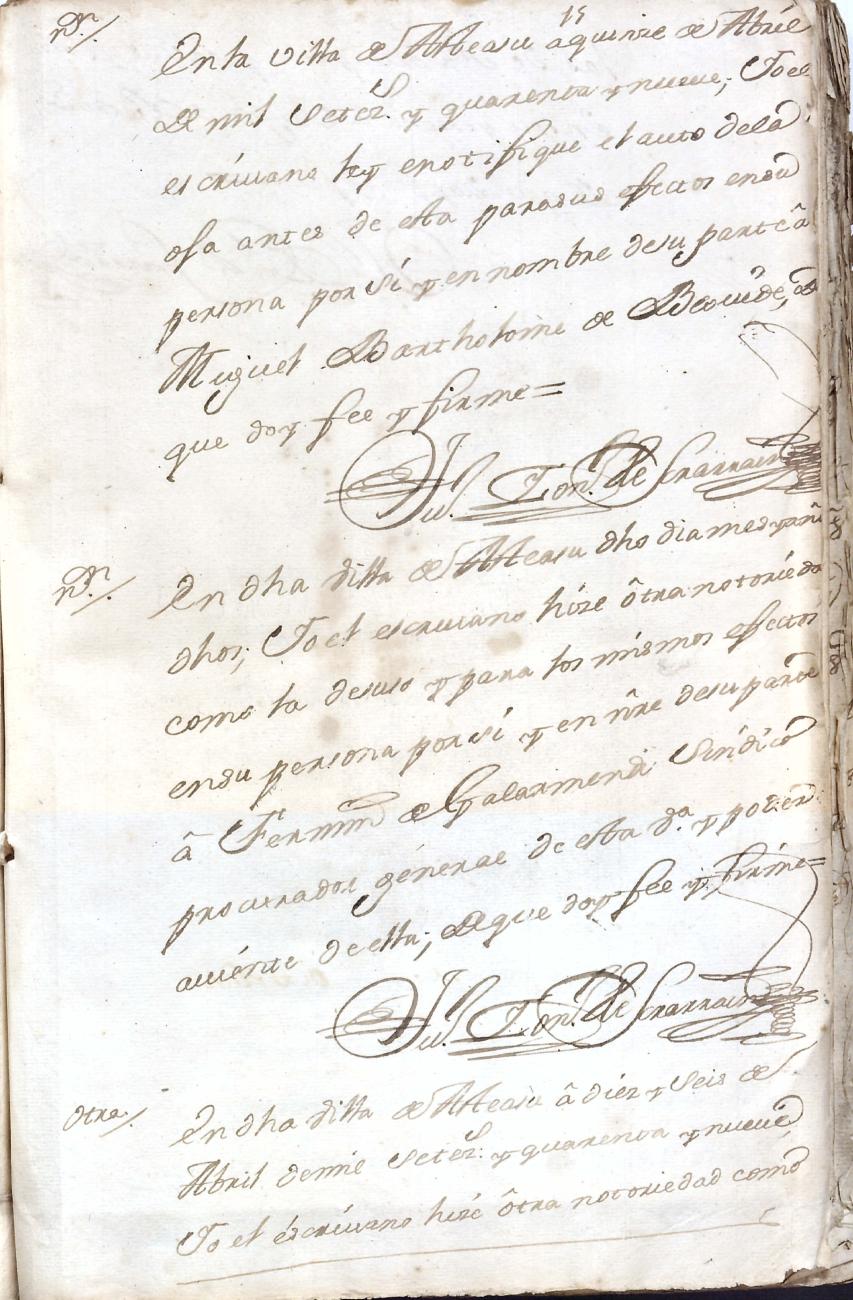 15
non/.
En la villa de Atteasu â quinze de Abril
de mil Setez.s y quarenta y nueve; Yo el
escriuano ley e notifique el auto de la
ofa antes de esta para sus efectos en su
persona por si y en nombre de su parte â
Miguel Bartholome de
que doy fee y firme =
de
non/.
En dha villa de Atteasu dho dia mes y año
dhos; Yo el escriuano hize ôtra notoriedad
como la desuso y para los mismos efectos
en su persona por si y en nre de su parte
â Fermin de Galarmendi Sindico
procurador géneral de esta d.a y poder
auiénte de ella; de que doy fee y firme =
de
Otra/.
En dha villa de Atteasu â diéz y Seis de
Abril de mil Setez.s y quarenta y nueve
Yo el éscriuano hizé ôtra notoriedad como